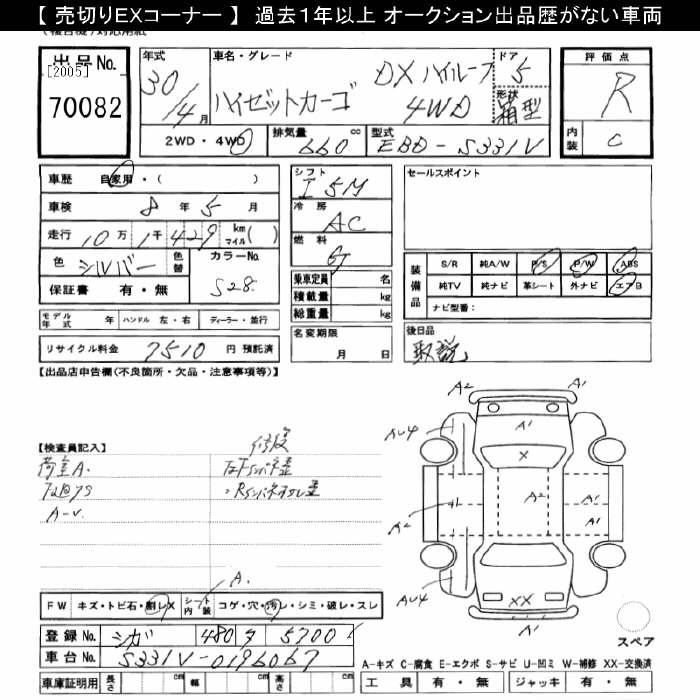 【 売切りEXコーナー 】 過去1年以上 オークション出品歴がない車両
出品No.
[2005]
70082
年式
30/4月
車名・グレード
ハイゼットカーゴ
DX ハイルーフ
4WD
ドア
5
形状
箱型
評価点
R
内装
C
2WD・4WD
排気量
660cc
型式
EBD-S331V
車歴 自家用・( )
車検 8年 5月
走行 10万1千429 km マイル( )
色 シルバー 色替
カラーNo.
S28
保証書 有・無
シフト
I5M
冷房
AC
燃料
G
乗車定員 名
積載量 kg
総重量 kg
セールスポイント
装備品
S/R 純A/W P/S P/W ABS
純TV 純ナビ 革シート 外ナビ エアB
ナビ型番:
モデル年式 年 ハンドル 左・右 ディーラー・並行
リサイクル料金 7510円 預託済
名変期限
月 日
後日品
取説
【出品店申告欄(不良箇所・欠品・注意事項等)】
【検査員記入】
荷室A.
修復
A-V.
A2 A1
AU4 A1 AU4
X
A2 A1 A2 A1 A1
AU4 XX A1
A.
FW キズ・トビ石・割レX シート内装 コゲ・穴・汚レ・シミ・破レ・スレ
登録No. シガ 480 タ 5700
車台No. S331V-0196067
車庫証明用 長さ cm 幅 cm 高さ cm
スペア
A-キズ C-腐食 E-エクボ S-サビ U-凹ミ W-補修 XX-交換済
工具 有・無 ジャッキ 有・無